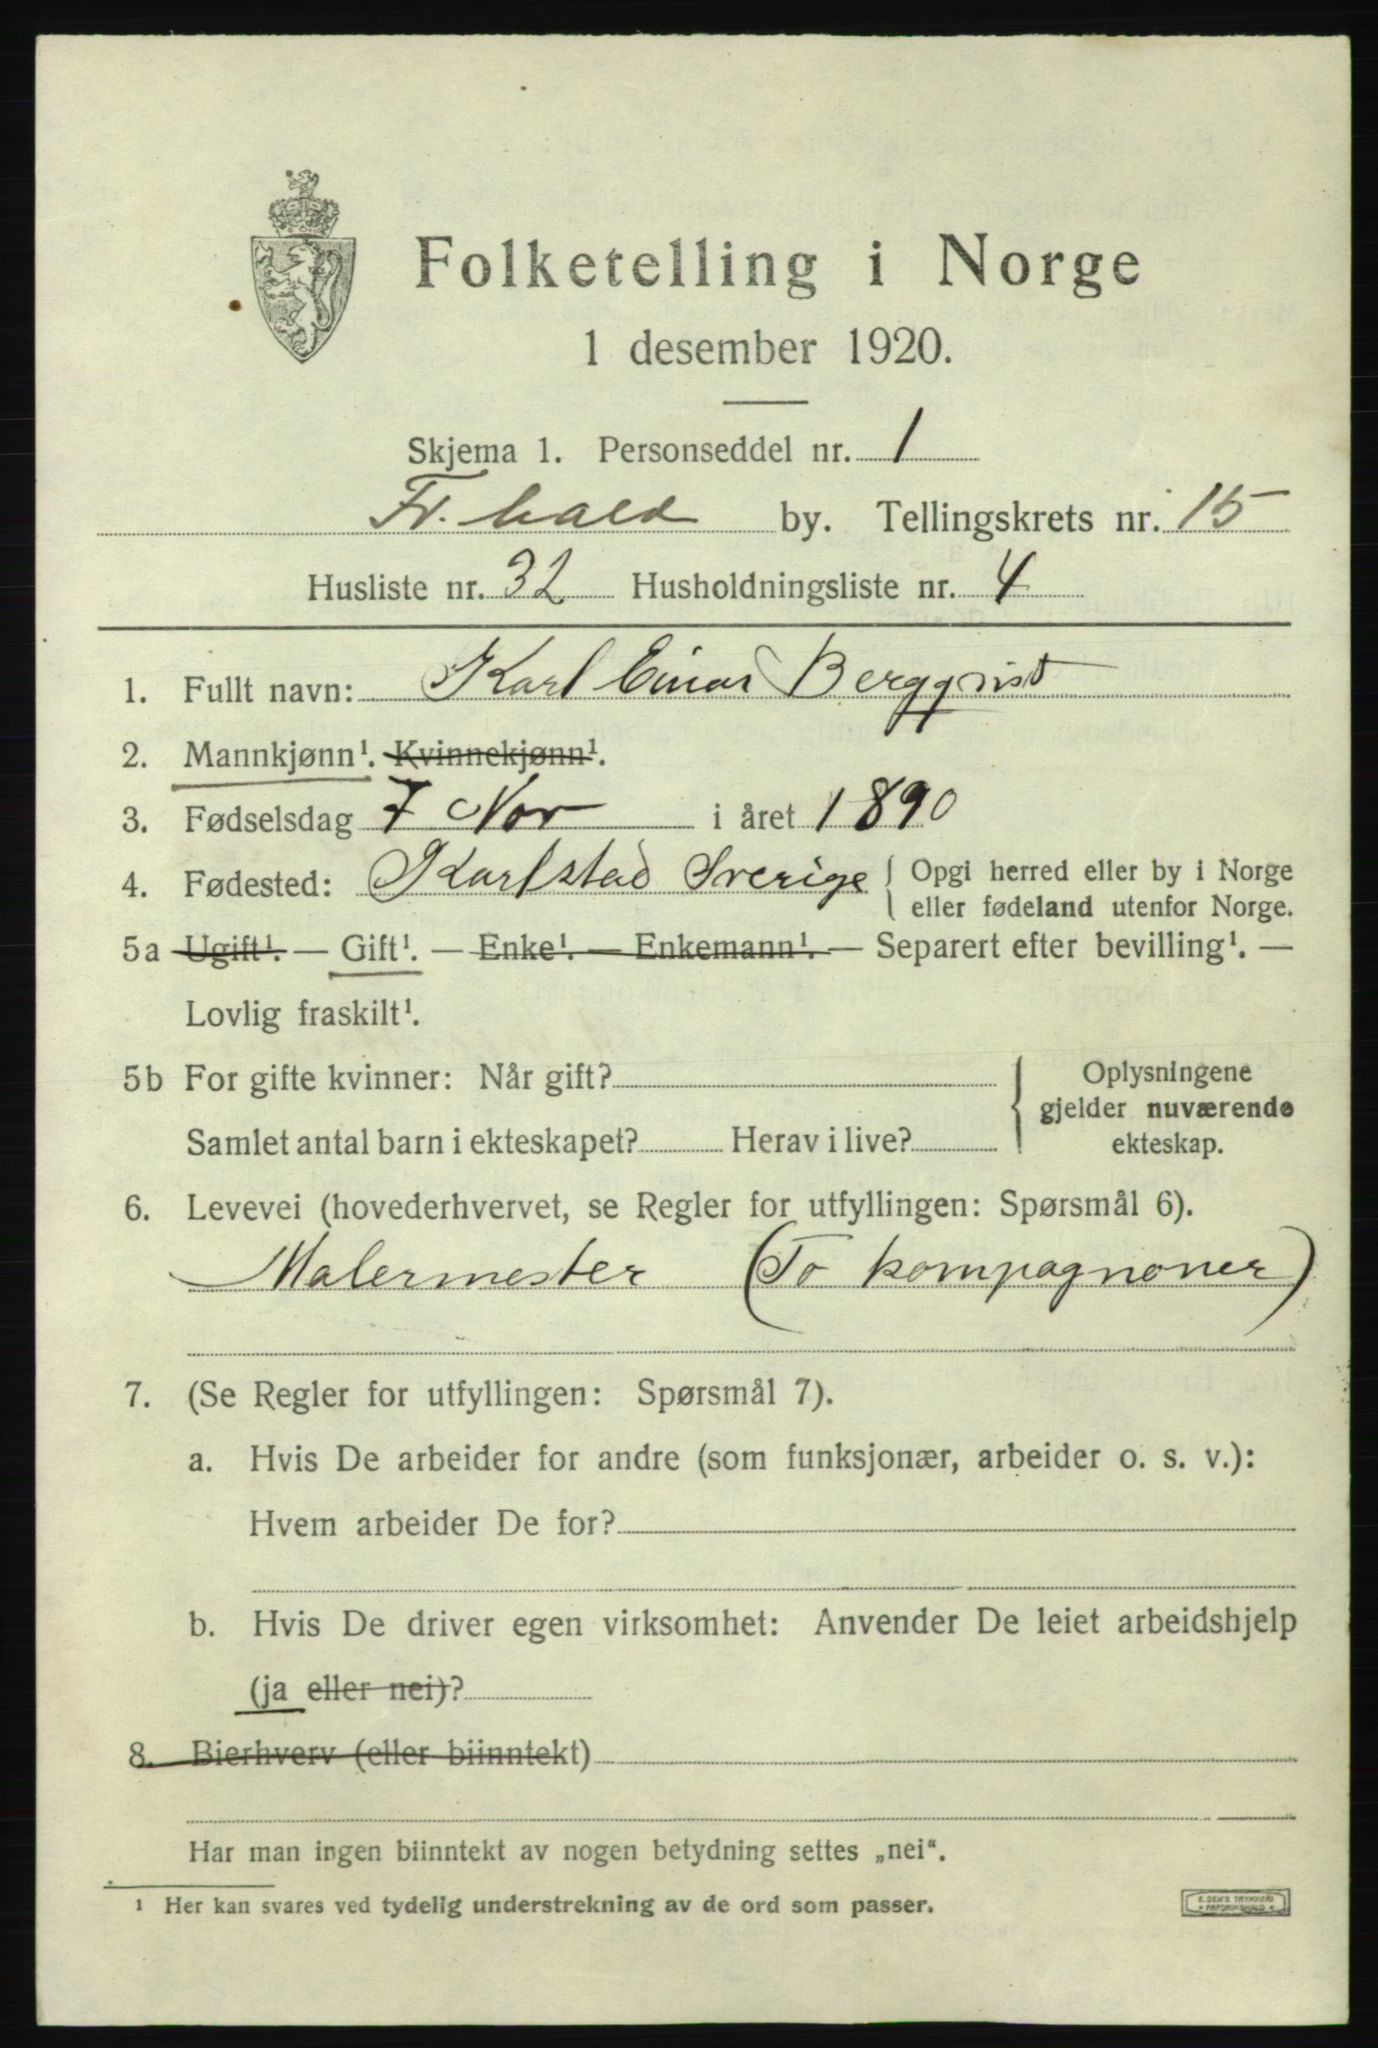 Folketelling i Norge
1 desember 1920.
Skjema 1. Personseddel nr. 1
Fr.hald by. Tellingskrets nr. 15
Husliste nr. 32 Husholdningsliste nr. 4
1. Fullt navn: Karl Einar Bergqvist
2. Mannkjønn¹. Kvinnekjønn¹.
3. Fødselsdag 7 Nov i året 1890
4. Fødested: Karlstad Sverige { Opgi herred eller by i Norge
eller fødeland utenfor Norge.
5a Ugift¹. — Gift¹. — Enke¹. — Enkemann¹. — Separert efter bevilling¹. —
Lovlig fraskilt¹.
5b For gifte kvinner: Når gift? { Oplysningene
gjelder nuværende
Samlet antal barn i ekteskapet? Herav i live? ekteskap.
6. Levevei (hovederhvervet, se Regler for utfyllingen: Spørsmål 6).
Malermester (To kompagnoner)
7. (Se Regler for utfyllingen: Spørsmål 7).
a. Hvis De arbeider for andre (som funksjonær, arbeider o. s. v.):
Hvem arbeider De for?
b. Hvis De driver egen virksomhet: Anvender De leiet arbeidshjelp
(ja eller nei)?
8. Bierhverv (eller biinntekt)
Har man ingen biinntekt av nogen betydning settes „nei“.
¹ Her kan svares ved tydelig understrekning av de ord som passer.
E. SEM'S TRYKKERI
FREDRIKSHALD